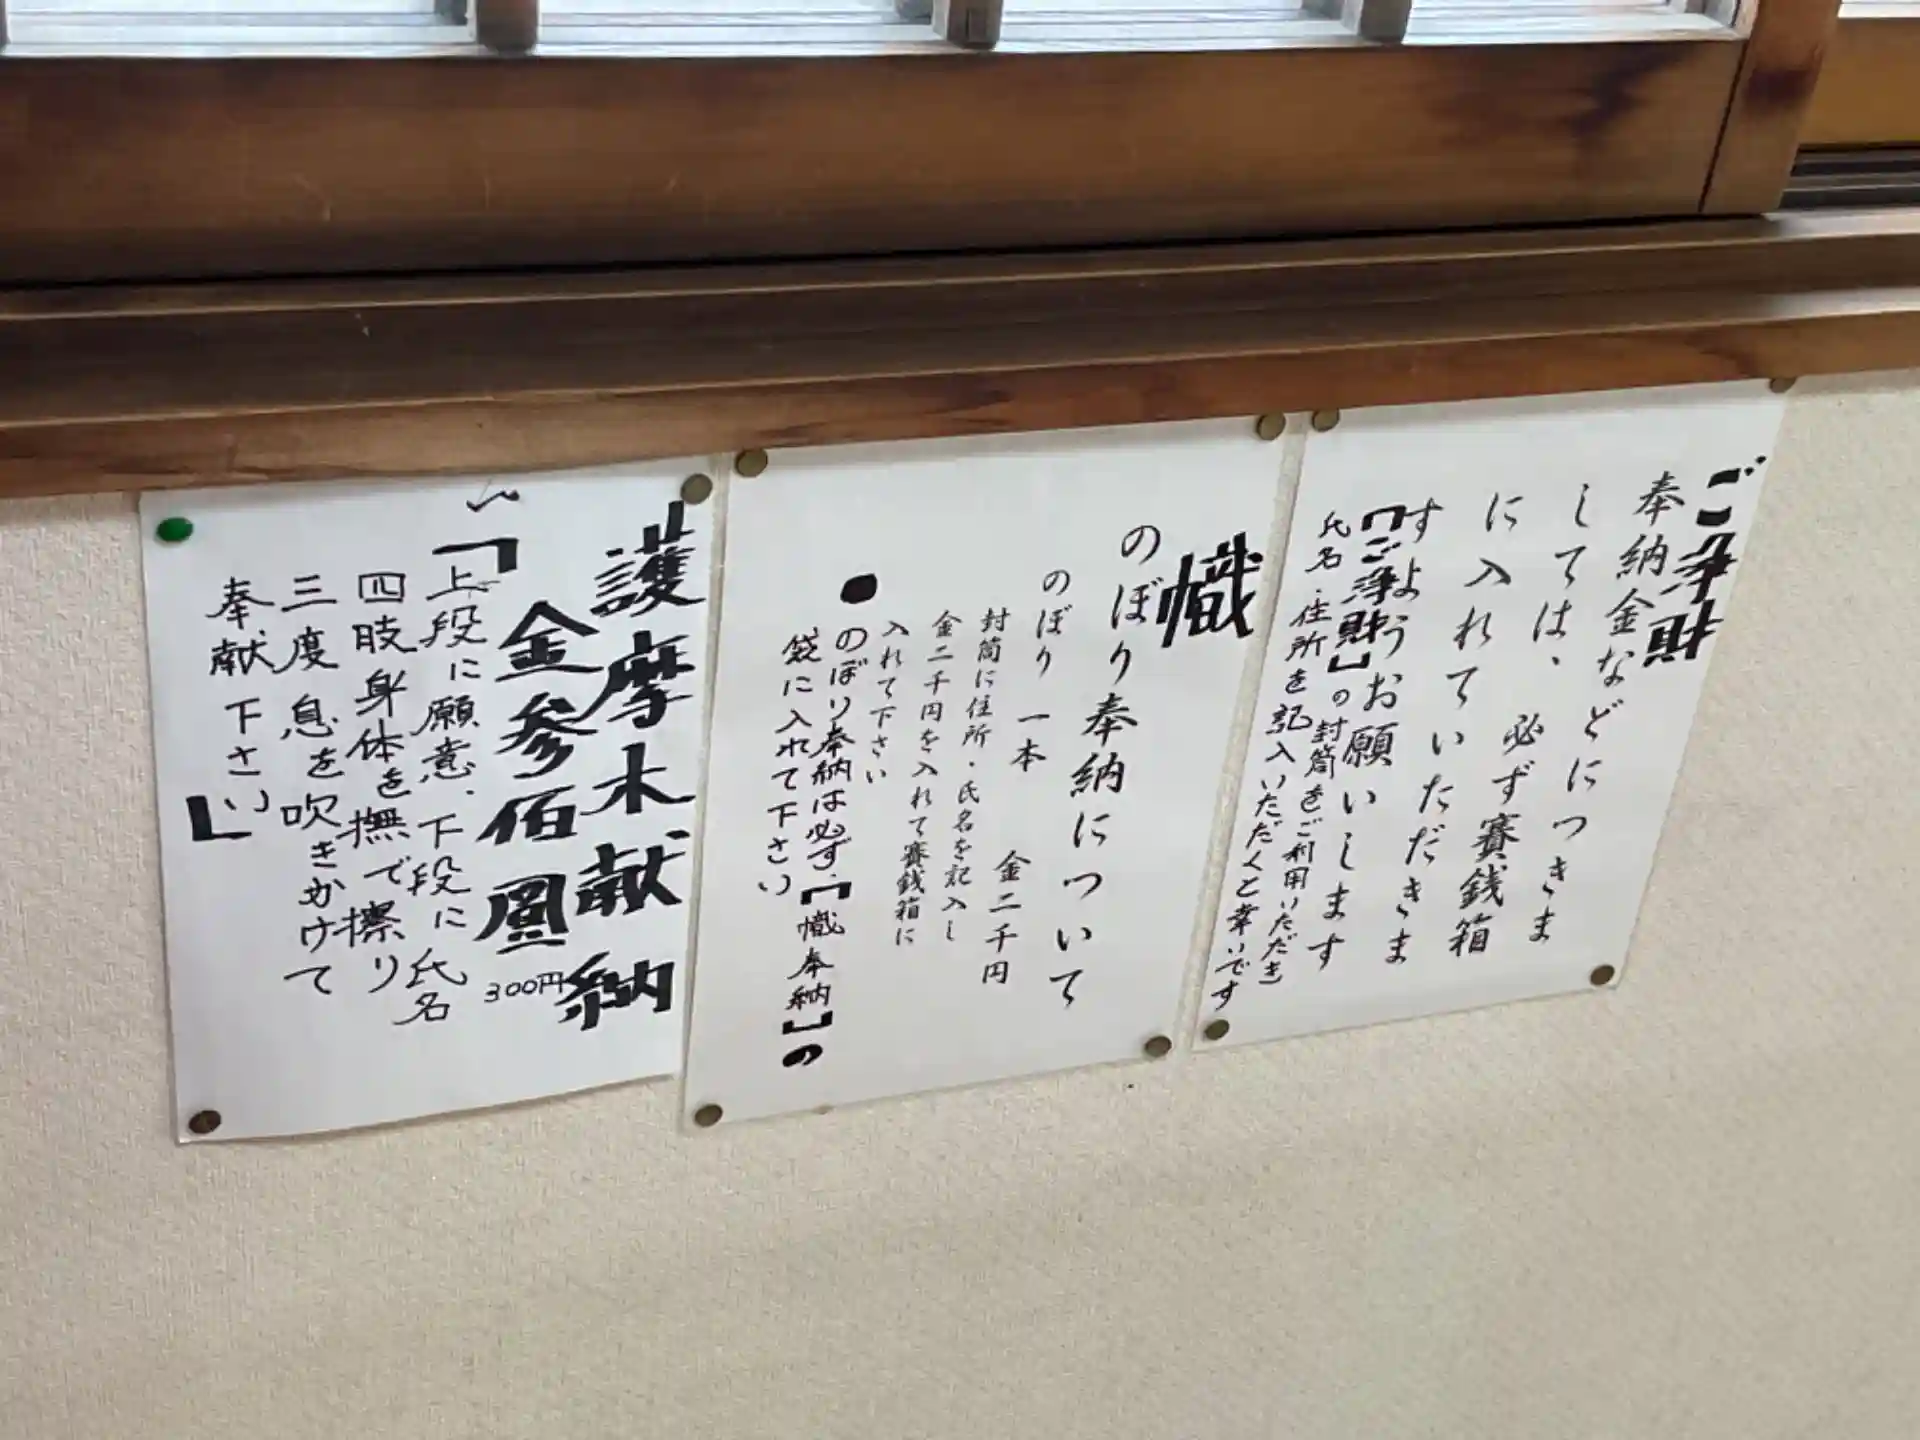 ご浄財
奉納金などにつきま
しては、必ず賽銭箱
に入れていただきま
すようお願いします
【ご浄財】の封筒をご利用いただき
氏名・住所を記入いただくと幸いです
幟
のぼり奉納について
のぼり 一本 金二千円
封筒に住所・氏名を記入し
金二千円を入れて賽銭箱に
入れて下さい
●のぼり奉納は必ず、【幟奉納】の
袋に入れて下さい
護摩木献納
金参佰圓
300円
「上段に願意、下段に氏名
四肢身体を撫で擦り
三度息を吹きかけて
奉献下さい」